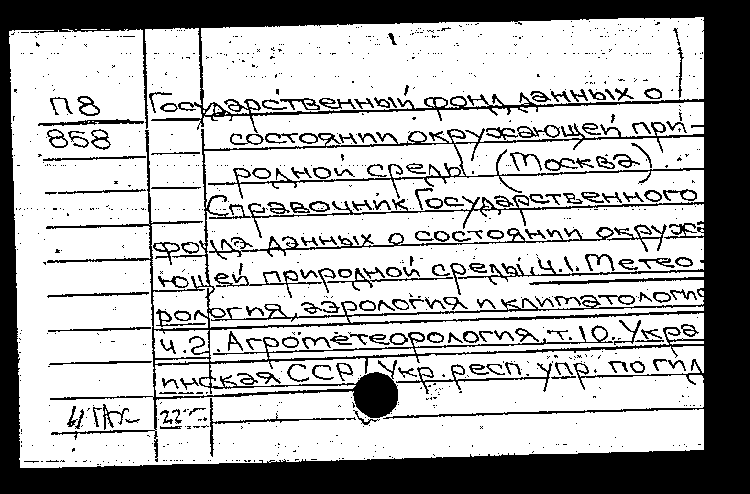 П8 Государственный фонд данных о
868 состоянии окружающей при-
родной среды. (Москва).
Справочник Государственного
фонда данных о состоянии окружа
ющей природной среды, ч.1. Метео-
рология, аэрология и климатология
ч.2. Агрометеорология, т.10. Укра
инская ССР / Укр. респ. упр. по гид
22